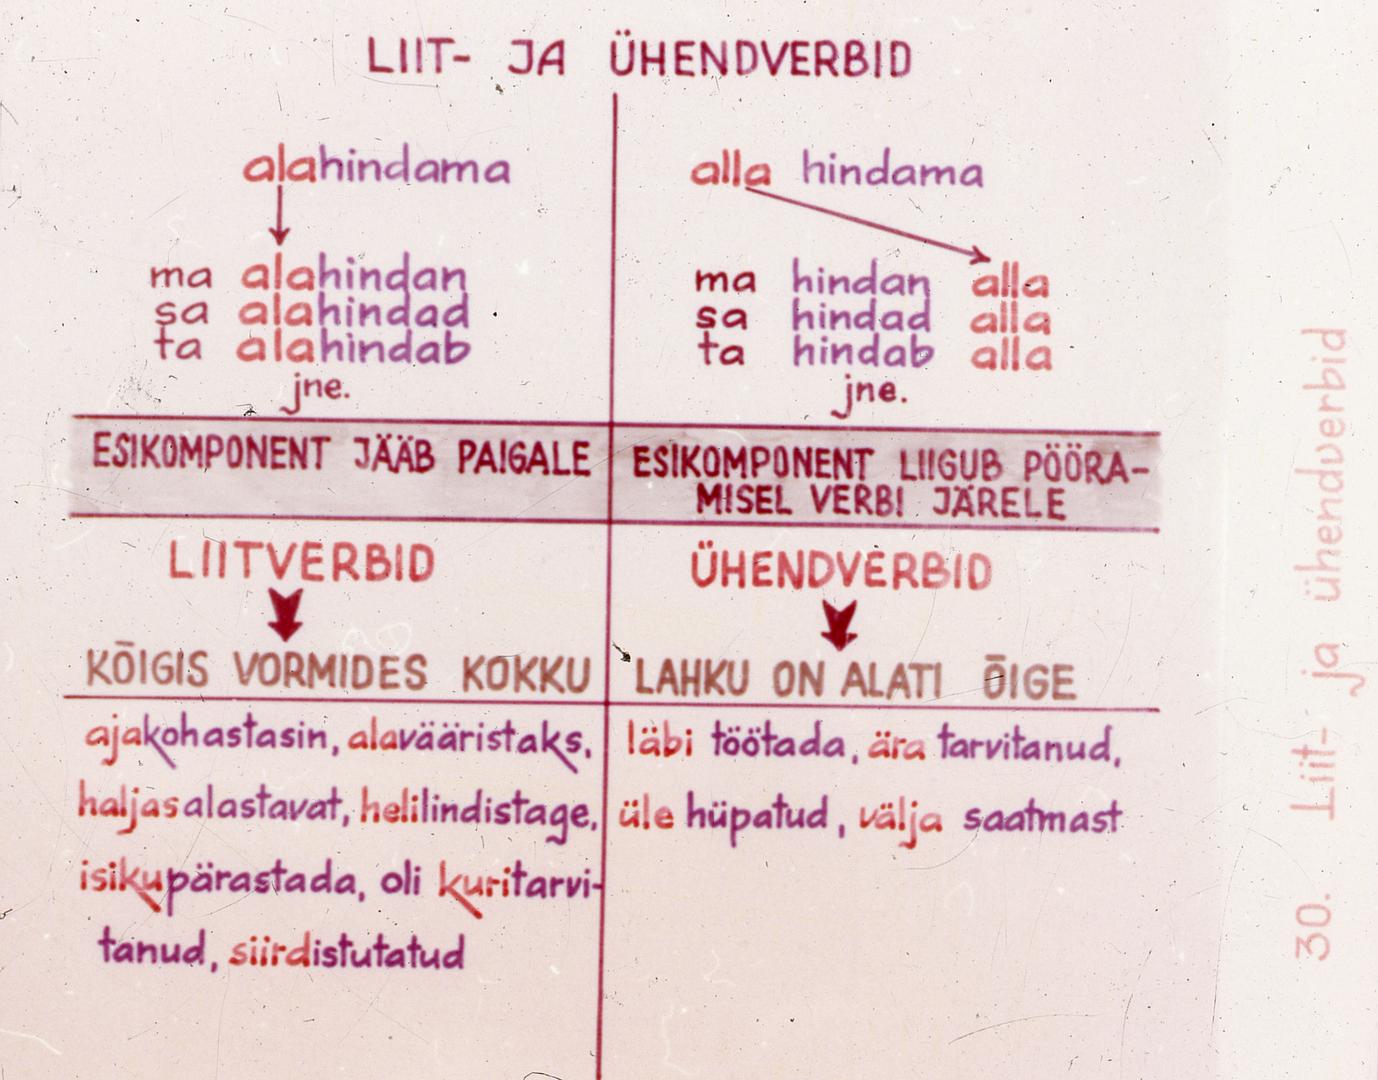 LIIT- JA ÜHENDVERBID
alahindama
ma alahindan
sa alahindad
ta alahindab
jne.
ESIKOMPONENT JÄÄB PAIGALE
LIITVERBID
KŌIGIS VORMIDES KOKKU
ajakohastasin, alavääristaks,
haljasalastavat, helilindistage,
isikupärastada, oli kuritarvi-
tanud, siirdistutatud
alla hindama
ma hindan alla
sa hindad alla
ta hindab alla
jne.
ESIKOMPONENT LIIGUB PÖÖRA-
MISEL VERBI JÄRELE
ÜHENDVERBID
LAHKU ON ALATI ŌIGE
läbi töötada, ära tarvitanud,
üle hüpatud, välja saatmast
30. Liit- ja ühendverbid